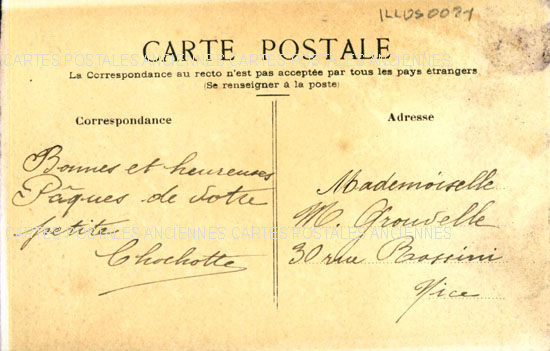 ILLUS0021
CARTE POSTALE
La Correspondance au recto n'est pas acceptée par tous les pays étrangers
(Se renseigner à la poste)
Correspondance
Bonnes et heureuses
Pâques de votre
petite
Chochotte
Adresse
Mademoiselle
M. Grouvelle
30 rue Rossini
Nice
CARTES POSTALES ANCIENNES CARTES POSTALES ANCIENNES
CARTES POSTALES ANCIENNES CARTES POSTALES ANCIENNES